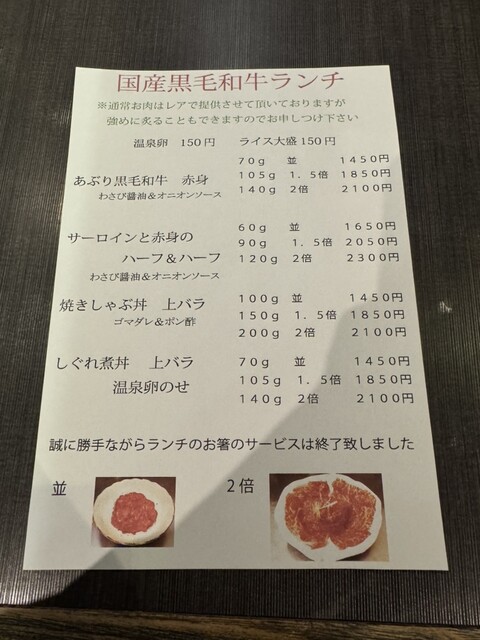 国産黒毛和牛ランチ
※通常お肉はレアで提供させて頂いておりますが
強めに炙ることもできますのでお申しつけ下さい
温泉卵 150円 ライス大盛150円
70g 並 1450円
あぶり黒毛和牛 赤身 105g 1.5倍 1850円
わさび醤油&オニオンソース 140g 2倍 2100円
60g 並 1650円
サーロインと赤身の 90g 1.5倍 2050円
ハーフ&ハーフ 120g 2倍 2300円
わさび醤油&オニオンソース
焼きしゃぶ丼 上バラ 100g 並 1450円
ゴマダレ&ポン酢 150g 1.5倍 1850円
200g 2倍 2100円
しぐれ煮丼 上バラ 70g 並 1450円
温泉卵のせ 105g 1.5倍 1850円
140g 2倍 2100円
誠に勝手ながらランチのお箸のサービスは終了致しました
並 2倍